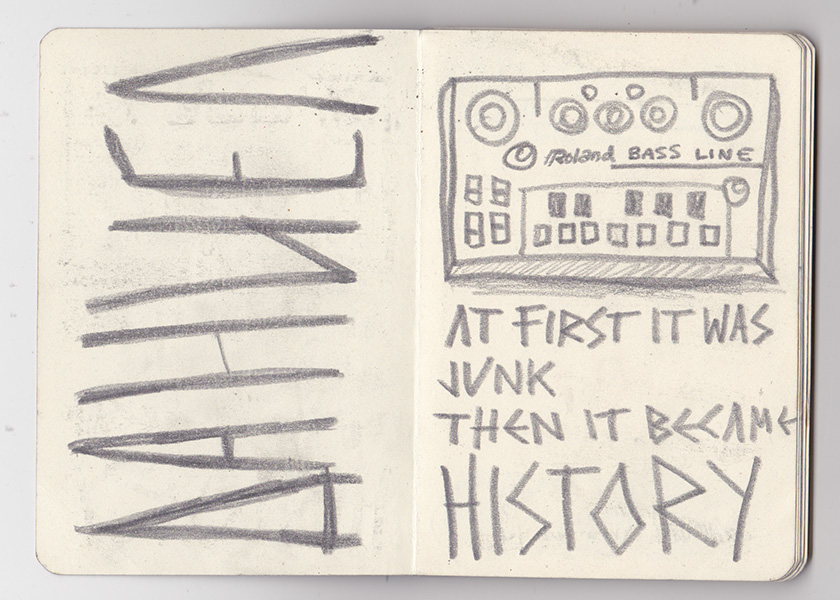 ДАНИЕЛ
Roland BASS LINE
AT FIRST IT WAS
JUNK
THEN IT BECAME
HISTORY